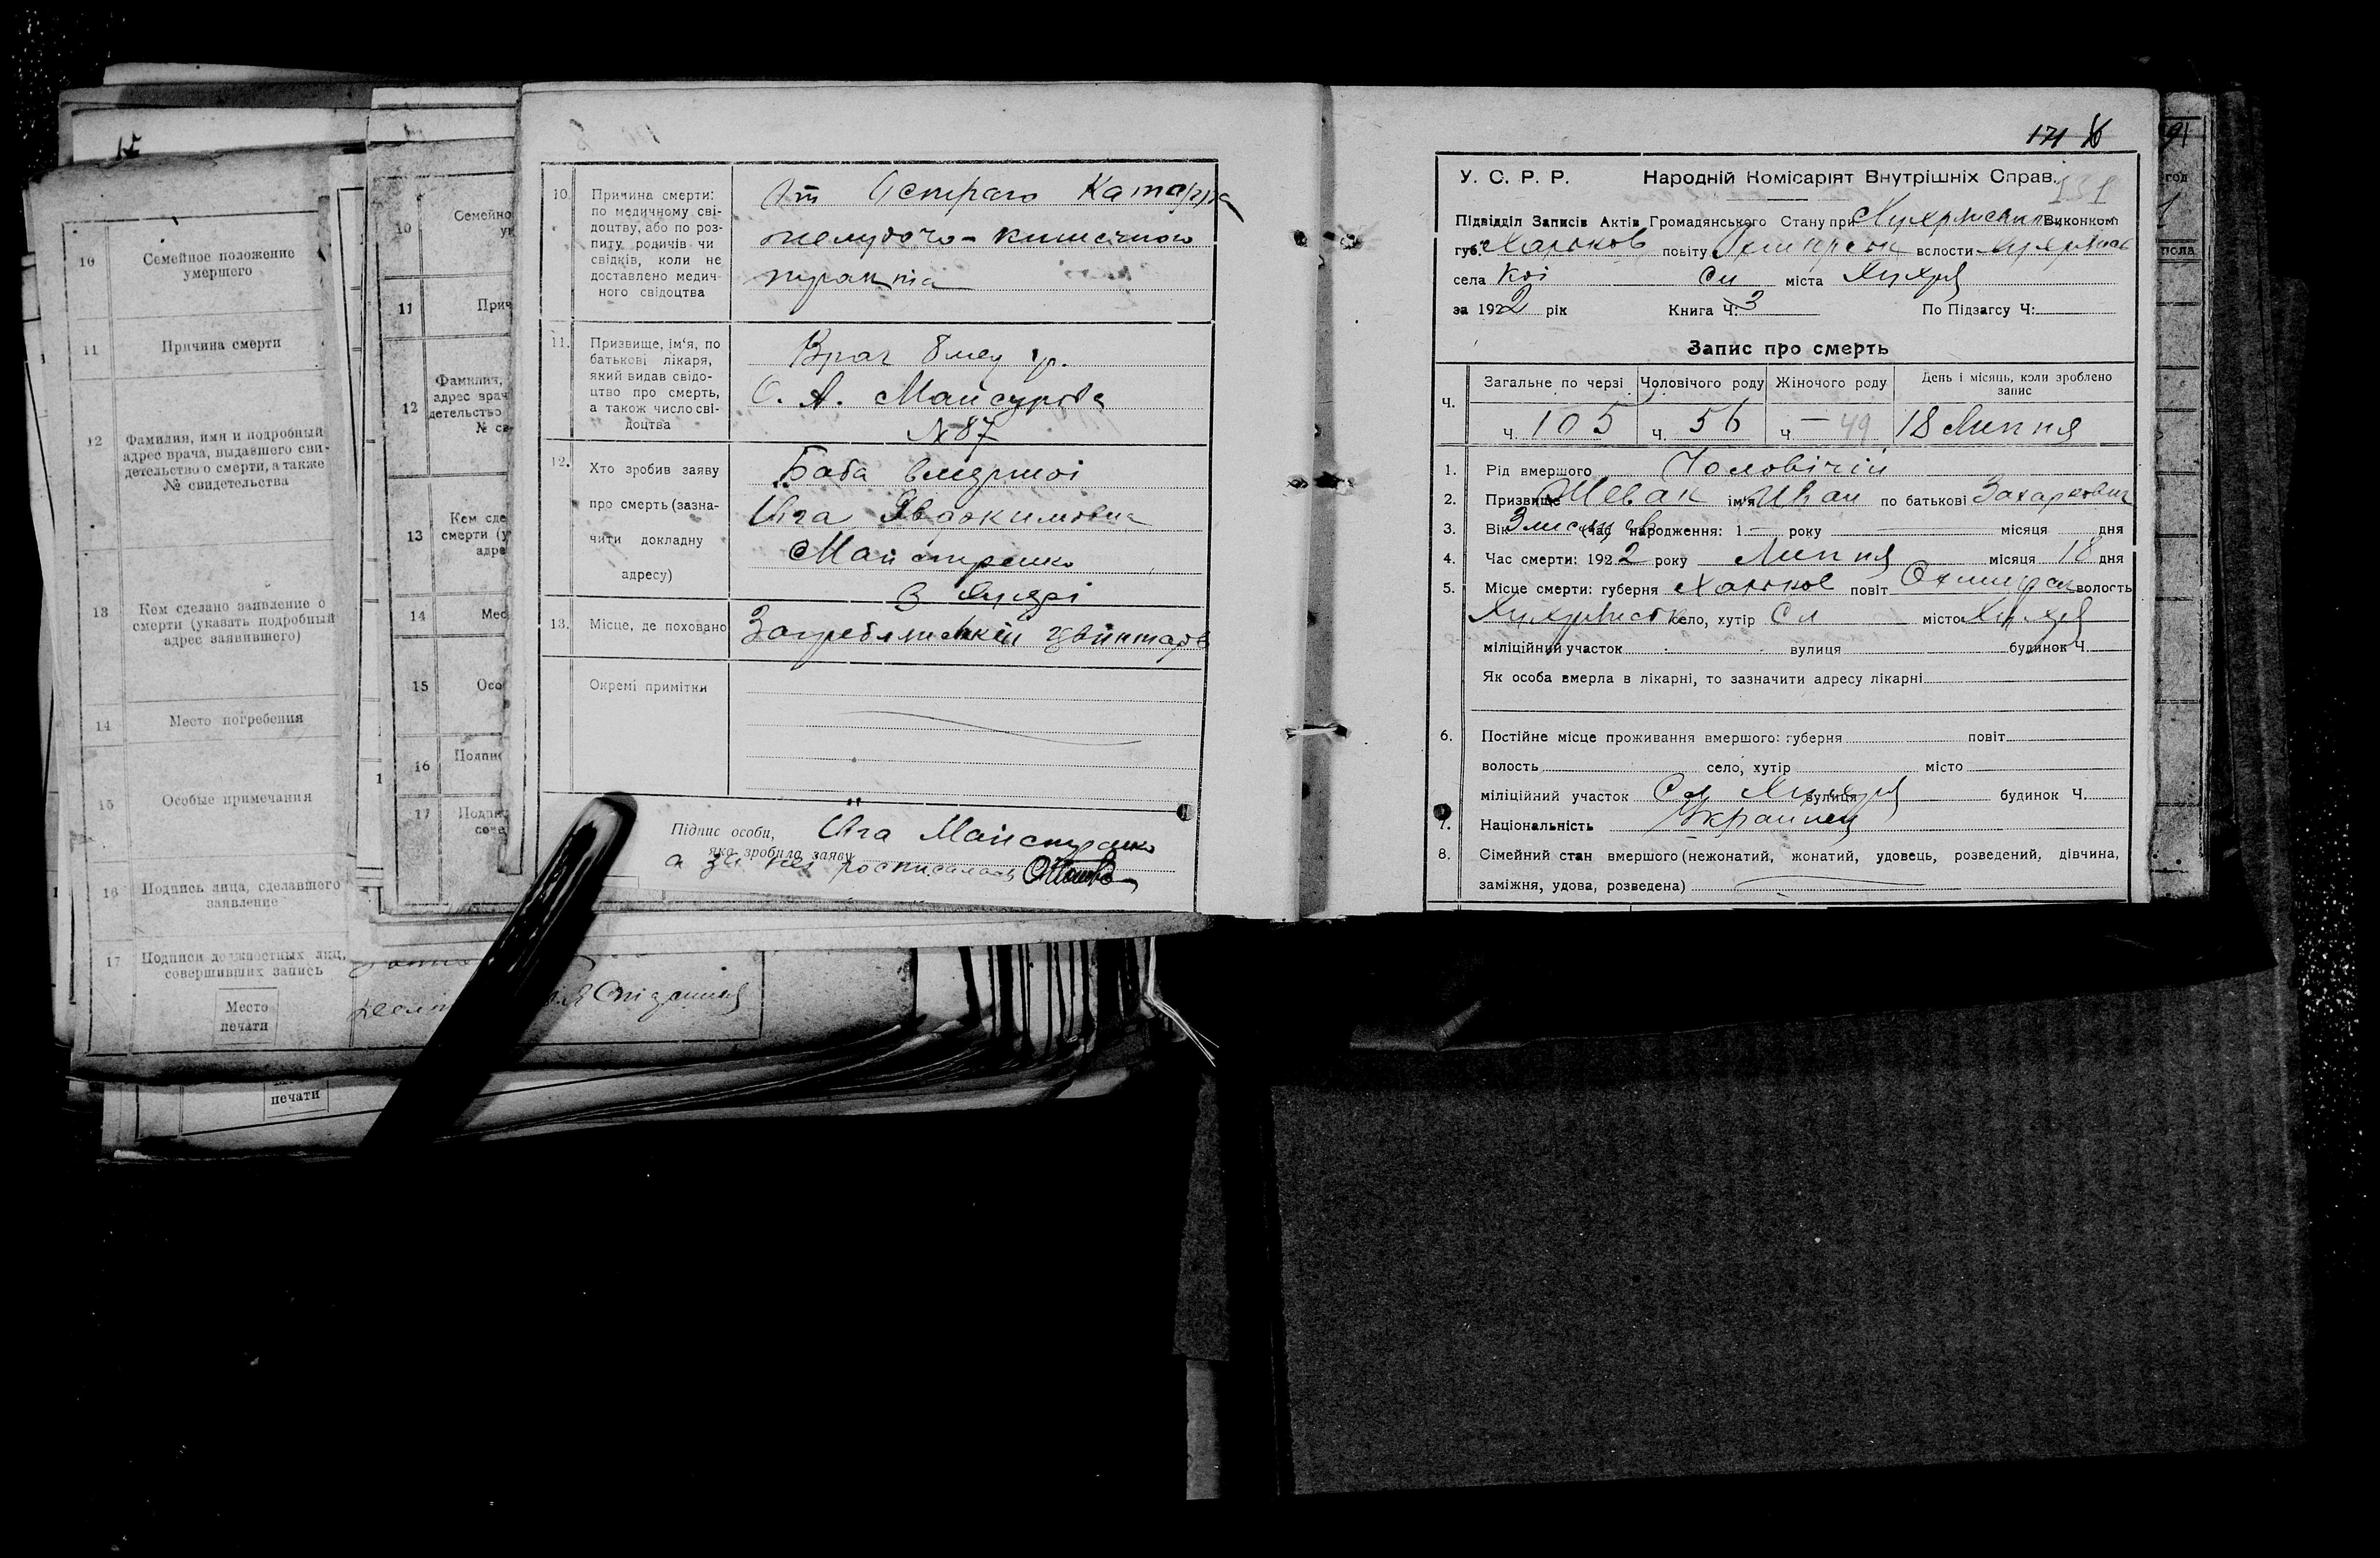 15
10 Семейное положение
умершего
11 Причина смерти
12 Фамилия, имя и подробный
адрес врача, выдавшего сви-
детельство о смерти, а также
№ свидетельства
13 Кем сделано заявление о
смерти (указать подробный
адрес заявившего)
14 Место погребения
15 Особые примечания
16 Подпись лица, сделавшего
заявление
17 Подписи должностных лиц,
совершивших запись
Место
печати
печати
10 Семейно
11 Прич
12 Фамилия,
адрес врач
детельство
№ св
13 Кем сде
смерти (у
адре
14 Мес
15 Осо
16 Подпис
17 Подпи
сове
10. Причина смерти:
по медичному сві-
доцтву, або по роз-
питу родичів чи
свідків, коли не
доставлено медич-
ного свідоцтва
От Острого Катарра
желудочо-кишечного
тракта
11. Призвище, ім'я, по
батькові лікаря,
який видав свідо-
цтво про смерть,
а також число сві-
доцтва
Врач 8 мед
С. А. Майсурова
№ 87
12. Хто зробив заяву
про смерть (зазна-
чити докладну
адресу)
Баба вмершоі
Явдокимовна
Майстренко
з Хухрі
13. Місце, де поховано
цвинтарь
Окремі примітки
Підпис особи,
яка зробила заяву
Майстренко
а за неі росписалась
171
131
У. С. Р. Р. Народній Комісаріят Внутрішніх Справ.
Підвідділ Записів Актів Громадянського Стану при Виконкомі
губ. Харьков повіту Охтирськ волости Хухрянск
села Коі Сл міста Хухря
за 1922 рік Книга Ч. 3 По Підзагсу Ч:
Запис про смерть
Ч. Загальне по черзі Чоловічого роду Жіночого роду День і місяць, коли зроблено
запис
Ч. 105 Ч. 56 Ч. — 49 18 Липня
1. Рід вмершого Чоловічій
2. Призвище Шевак ім'я Иван по батькові Захаркович
3. Вік 3 місяц (час народження: 1 — року місяця дня
4. Час смерти: 1922 року Липня місяця 18 дня
5. Місце смерти: губерня Харьков повіт Охтирск волость
село, хутір Сл місто Хухря
міліційний участок вулиця будинок Ч.
Як особа вмерла в лікарні, то зазначити адресу лікарні
6. Постійне місце проживання вмершого: губерня повіт
волость село, хутір місто
міліційний участок Сл Хухря вулиця будинок Ч.
7. Національність Украинец
8. Сімейний стан вмершого (нежонатий, жонатий, удовець, розведений, дівчина,
заміжня, удова, розведена)
91
год
пола